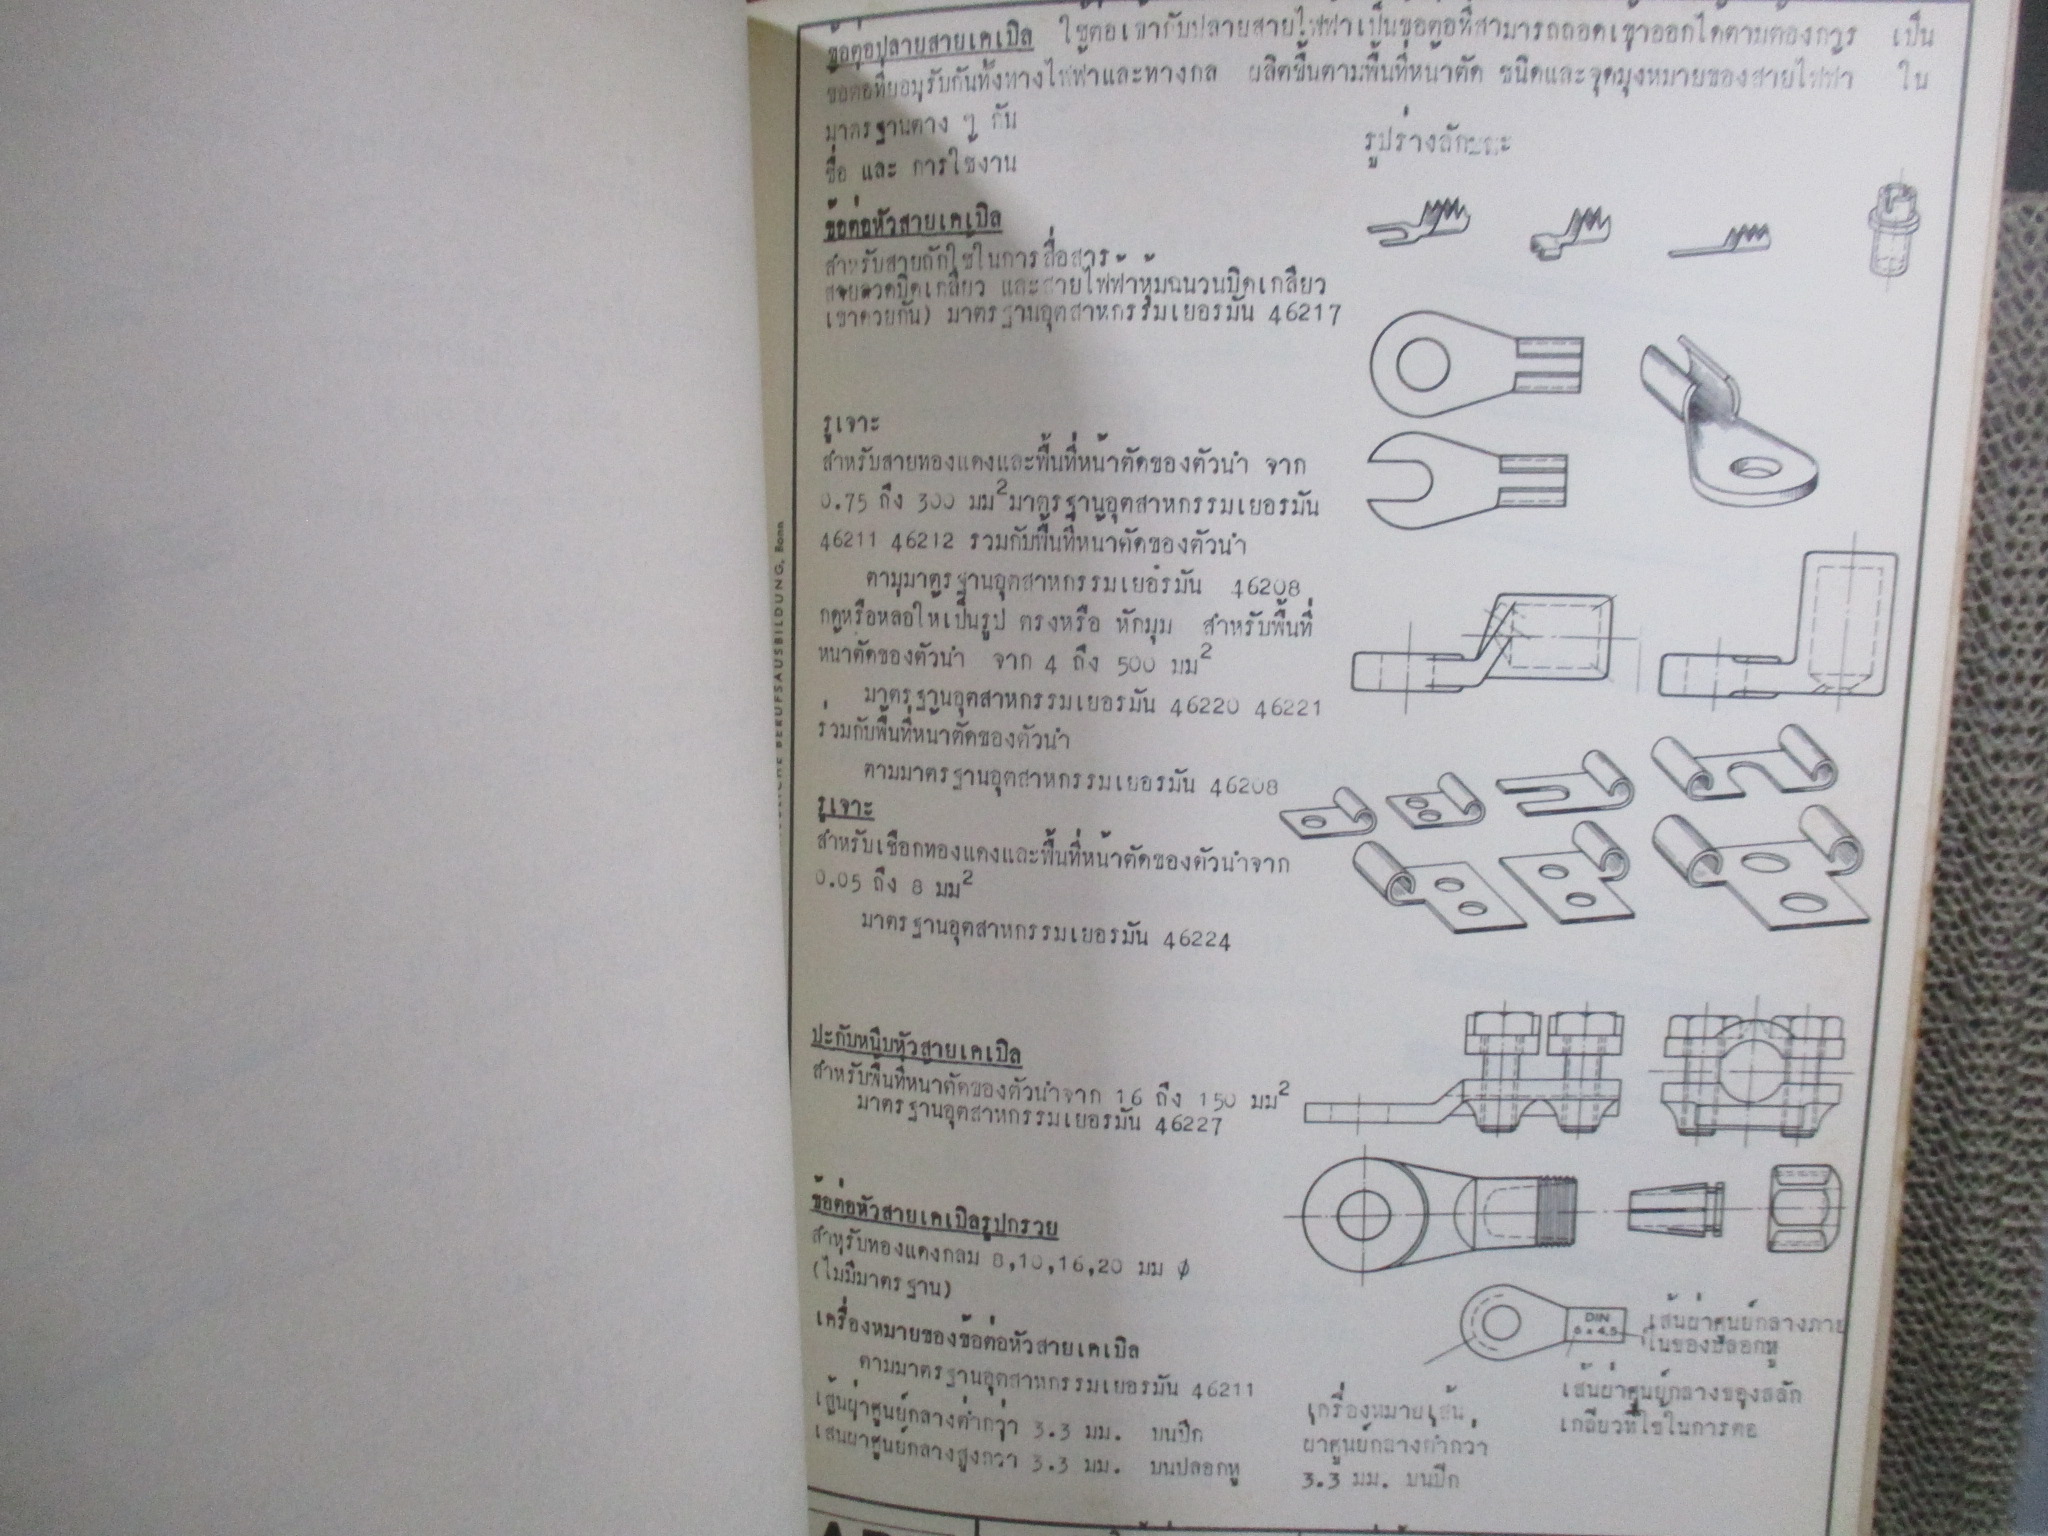 ข้อต่อปลายสายเคเบิล ใช้ต่อเข้ากับปลายสายไฟฟ้าเป็นข้อต่อที่สามารถถอดเข้าออกได้ตามต้องการ เป็น
ข้อต่อที่ยอมรับกันทั้งทางไฟฟ้าและทางกล ผลิตขึ้นตามพื้นที่หน้าตัด ชนิดและจุดมุ่งหมายของสายไฟฟ้า ใน
มาตรฐานต่าง ๆ กัน
รูปร่างลักษณะ
ชื่อ และ การใช้งาน
ข้อต่อหัวสายเคเบิล
สำหรับสายถักใช้ในการสื่อสาร
สายลวดบิดเกลียว และสายไฟฟ้าหุ้มฉนวนบิดเกลียว
เข้าด้วยกัน) มาตรฐานอุตสาหกรรมเยอรมัน 46217
รูเจาะ
สำหรับสายทองแดงและพื้นที่หน้าตัดของตัวนำ จาก
0.75 ถึง 300 มม2มาตรฐานอุตสาหกรรมเยอรมัน
46211 46212 รวมกับพื้นที่หน้าตัดของตัวนำ
ตามมาตรฐานอุตสาหกรรมเยอรมัน 46208
กดหรือหลอให้เป็นรูป ตรงหรือ หักมุม สำหรับพื้นที่
หน้าตัดของตัวนำ จาก 4 ถึง 500 มม2
มาตรฐานอุตสาหกรรมเยอรมัน 46220 46221
ร่วมกับพื้นที่หน้าตัดของตัวนำ
ตามมาตรฐานอุตสาหกรรมเยอรมัน 46208
รูเจาะ
สำหรับเชือกทองแดงและพื้นที่หน้าตัดของตัวนำจาก
0.05 ถึง 8 มม2
มาตรฐานอุตสาหกรรมเยอรมัน 46224
ปะกับหนีบหัวสายเคเบิล
สำหรับพื้นที่หน้าตัดของตัวนำจาก 16 ถึง 150 มม2
มาตรฐานอุตสาหกรรมเยอรมัน 46227
ข้อต่อหัวสายเคเบิลรูปกรวย
สำหรับทองแดงกลม 8,10,16,20 มม ø
(ไม่มีมาตรฐาน)
เครื่องหมายของข้อต่อหัวสายเคเบิล
ตามมาตรฐานอุตสาหกรรมเยอรมัน 46211
เส้นผ่าศูนย์กลางต่ำกว่า 3.3 มม. บนปีก
เส้นผ่าศูนย์กลางสูงกว่า 3.3 มม. บนปลอกหู
DIN
6 x 4,5
เส้นผ่าศูนย์กลางภาย
ในของปลอกหู
เส้นผ่าศูนย์กลางของสลัก
เกลียวที่ใช้ในการต่อ
เครื่องหมายเส้น
ผ่าศูนย์กลางต่ำกว่า
3.3 มม. บนปีก
BERUFSAUSBILDUNG, Bonn